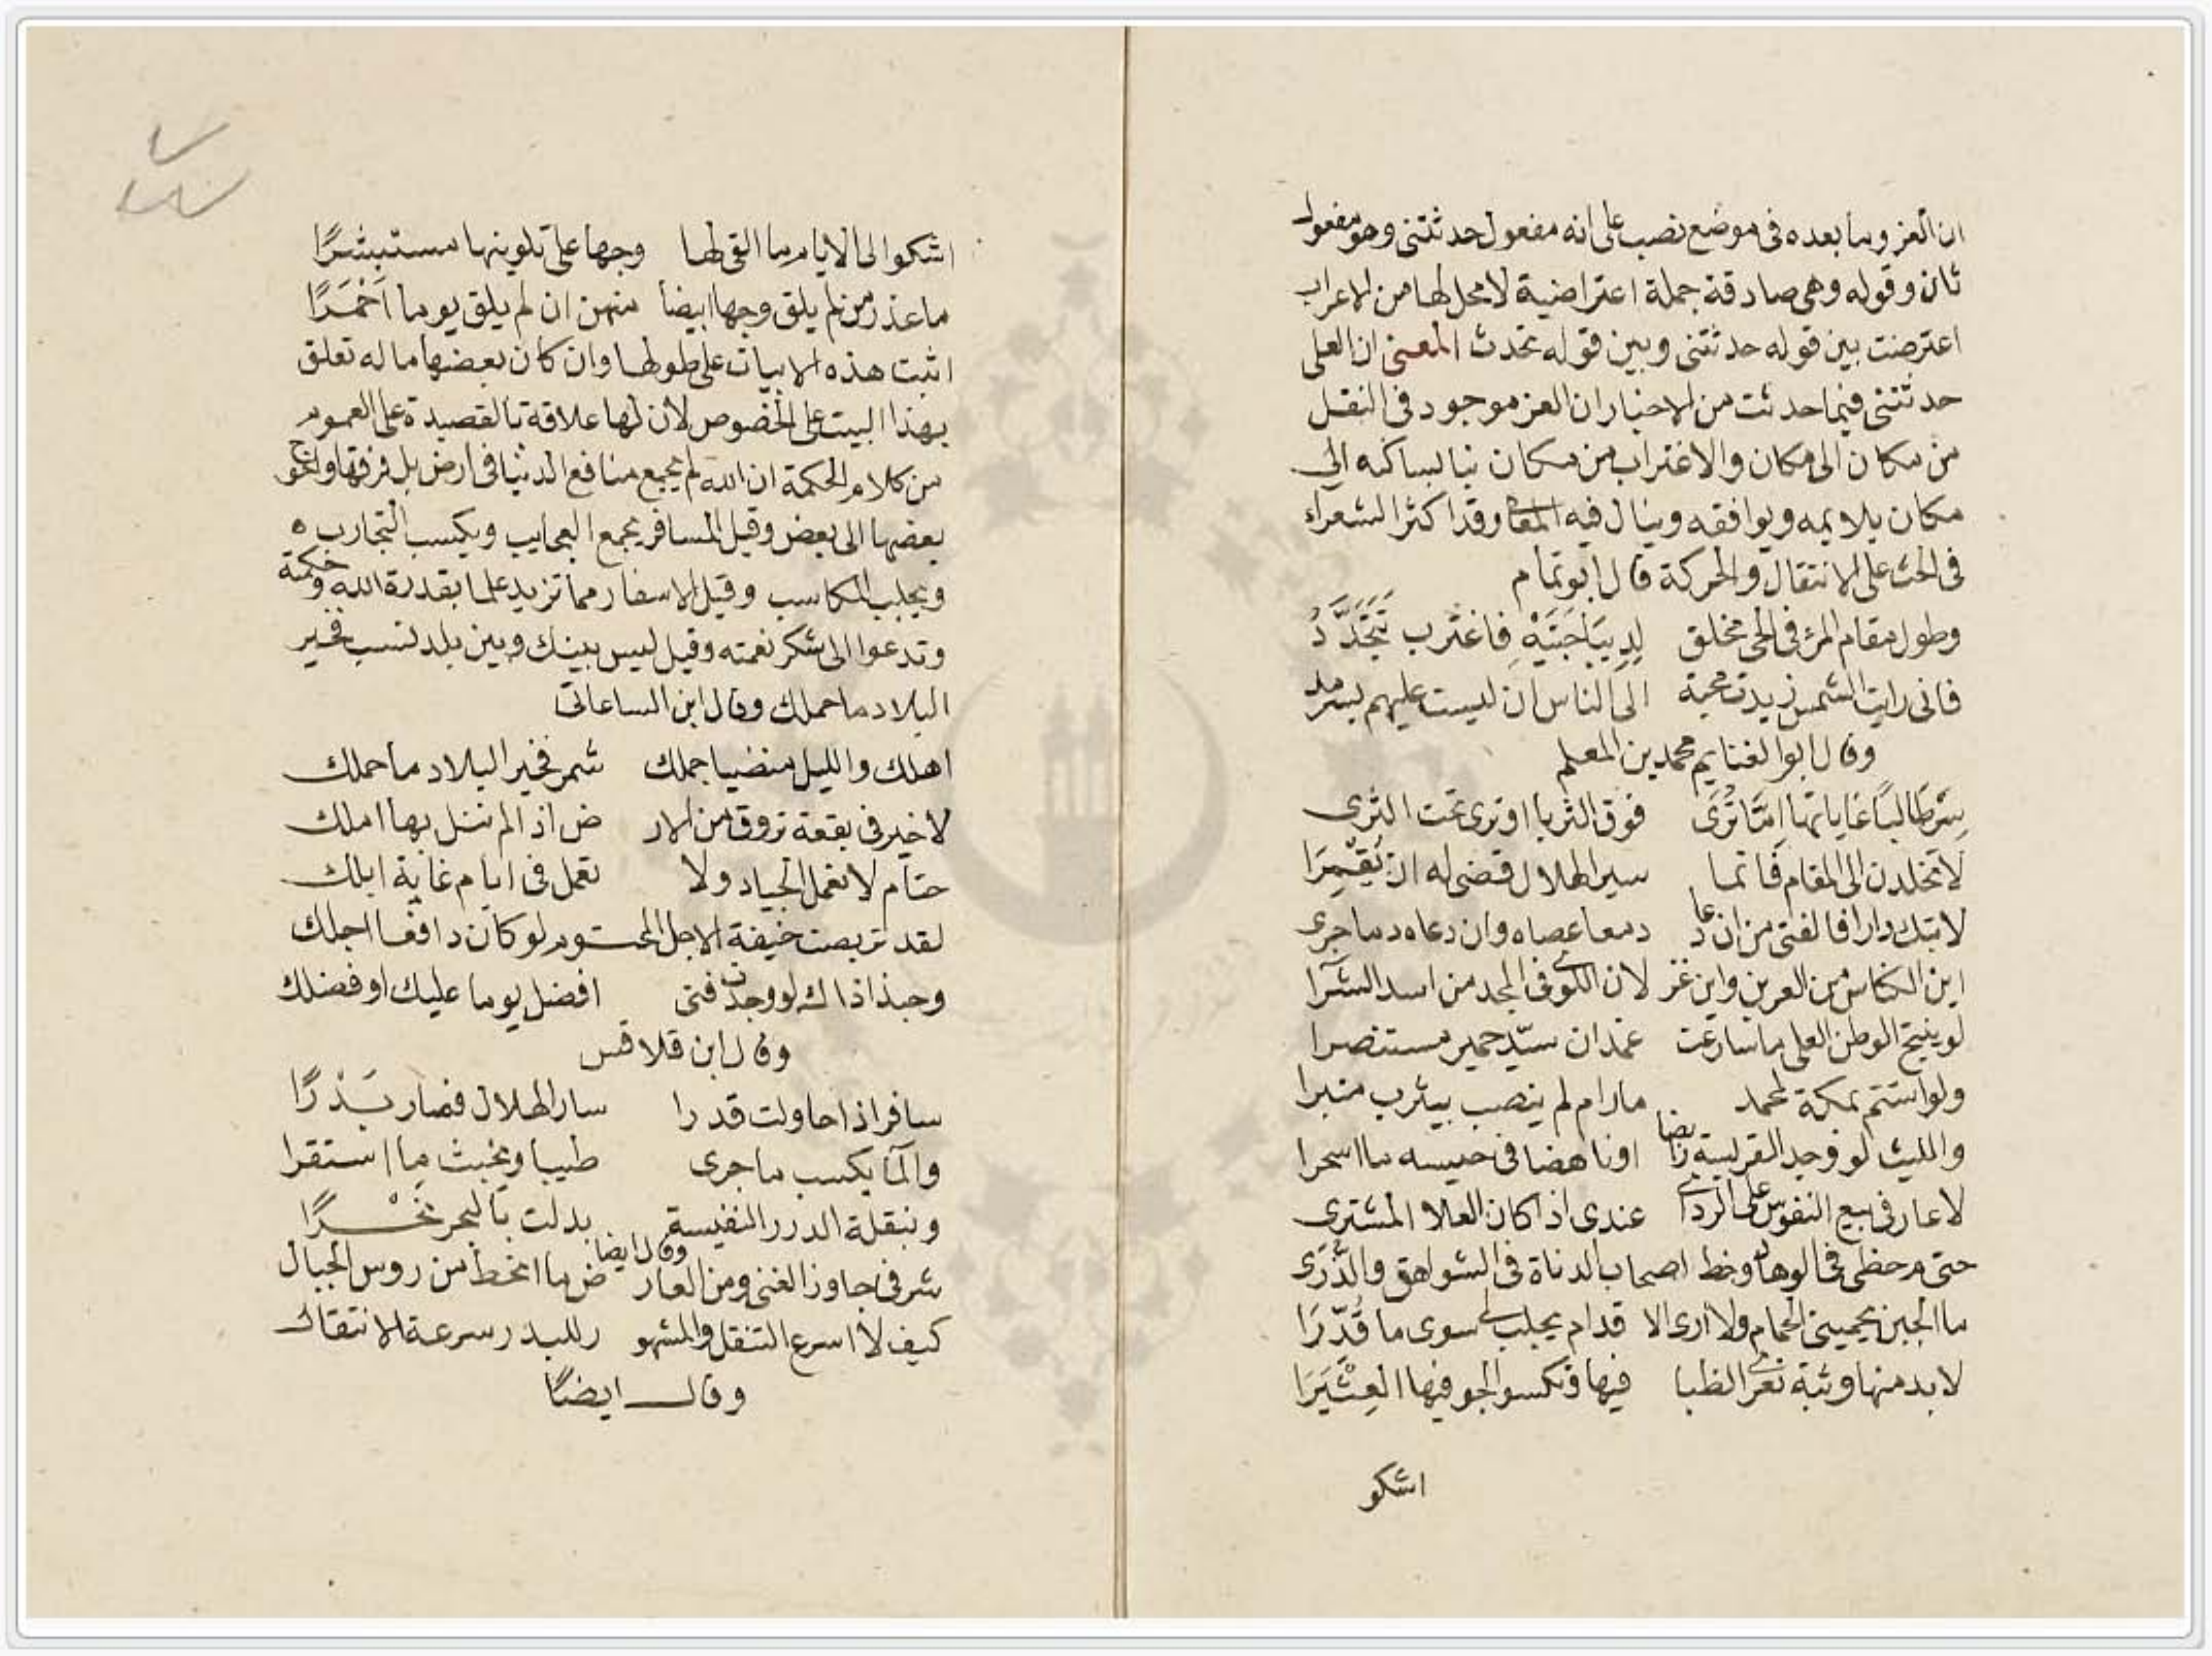 ان العز وما بعده فى موضع نصب على انه مفعول حدثتنى وهو مفعول
ثان وقوله وهى صادقة جملة اعتراضية لا محل لها من الاعراب
اعترضت بين قوله حدثتنى وبين قوله تحدث المعنى ان العلى
حدثتنى فيما حدثت من الاخبار ان العز موجود فى النقل
من مكان الى مكان والاغتراب من مكان نبا بساكنه الى
مكان يلايمه ويوافقه وينال فيه وقد اكثر الشعراء
فى الحث على الانتقال والحركة قال ابو تمام
وطول مقام المرء فى الحى مخلق لديباجتيه فاغترب تتجدد
فانى رايت الشمس زيدت محبة الى الناس ان ليست عليهم بسرمد
وقال ابو الغنايم محمد بن المعلم
سر طالبا غاياتها اما ترى فوق الثريا او ترى تحت الثرى
لا تخلدن الى المقام فانما سير الهلال قضى له ان يقمرا
لا تبك دارا فالفتى من ان دعا دمعا عصاه وان دعاه دما جرى
اين الكناس من العرين واين غز لان اللوى فى المجد من اسد الشرا
لو ينتج الوطن العلى ما سارعت غمدان سيد حمير مستنصرا
ولو استتم بمكة لمحمد ما رام لم ينصب بيثرب منبرا
والليث لو وجد الفريسة رابضا او ناهضا فى خيسه ما اسحرا
لا عار فى بيع النفوس على الردى عندى اذا كان العلا المشترى
حتى م حظى فى الوهاد وحظ اصحاب الدناة فى الشواهق والذرى
ما الجبن يحمينى الحمام ولا ارى الا قدام يجلب لى سوى ما قدرا
لا بد منها وثبة تعرى الظبا فيها وتكسوا الجو فيها العثيرا
اشكو
اشكوا الى الايام ما القى لها وجها على تلوينها مستبشرا
ما عذر من لم يلق وجها ابيضا منهن ان لم يلق يوما احمرا
اثبت هذه الابيات على طولها وان كان بعضها ما له تعلق
بهذا البيت على الخصوص لان لها علاقة بالقصيدة على العموم
من كلام الحكمة ان الله لم يجمع منافع الدنيا فى ارض بل فرقها واحوج
بعضها الى بعض وقيل المسافر يجمع العجايب ويكسب التجارب
ويجلب المكاسب وقيل الاسفار مما تزيد علما بقدرة الله وحكمته
وتدعوا الى شكر نعمته وقيل ليس بينك وبين بلد نسب فخير
البلاد ما حملك وقال ابن الساعاتى
اهلك والليل منضيا جملك شمر فخير البلاد ما حملك
لا خير فى بقعة تروق من الار ض اذ الم تنل بها املك
حتام لا تعمل الجياد ولا تعمل فى ايام غاية ابلك
لقد تربصت خيفة الاجل المحتوم لو كان دافعا اجلك
وحبذا ذاك لو وجدت فتى افضل يوما عليك او فضلك
وقال ابن قلاقس
سافر اذا حاولت قدرا سار الهلال فصار بدرا
والما يكسب ما جرى طيبا ويخبث ما استقرا
وبنقلة الدرر النفيسة بدلت بالبحر نحرا
وقال ايضا
شرفى جاوز الغنى ومن العار ض ما انحط من روس الجبال
كيف لا اسرع التنقل والمشهو ر للبدر سرعة الانتقال
وقال ايضا